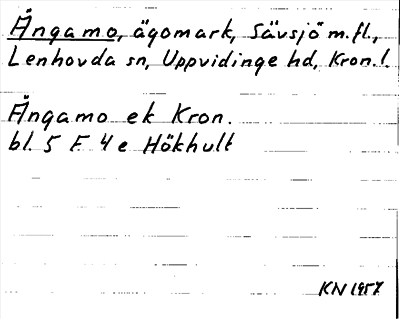 Ängamo, ägomark, Sävsjö m.fl.,
Lenhovda sn, Uppvidinge hd, Kron.l.
Ängamo ek Kron.
bl. 5 F 4 e Hökhult
KN 1957